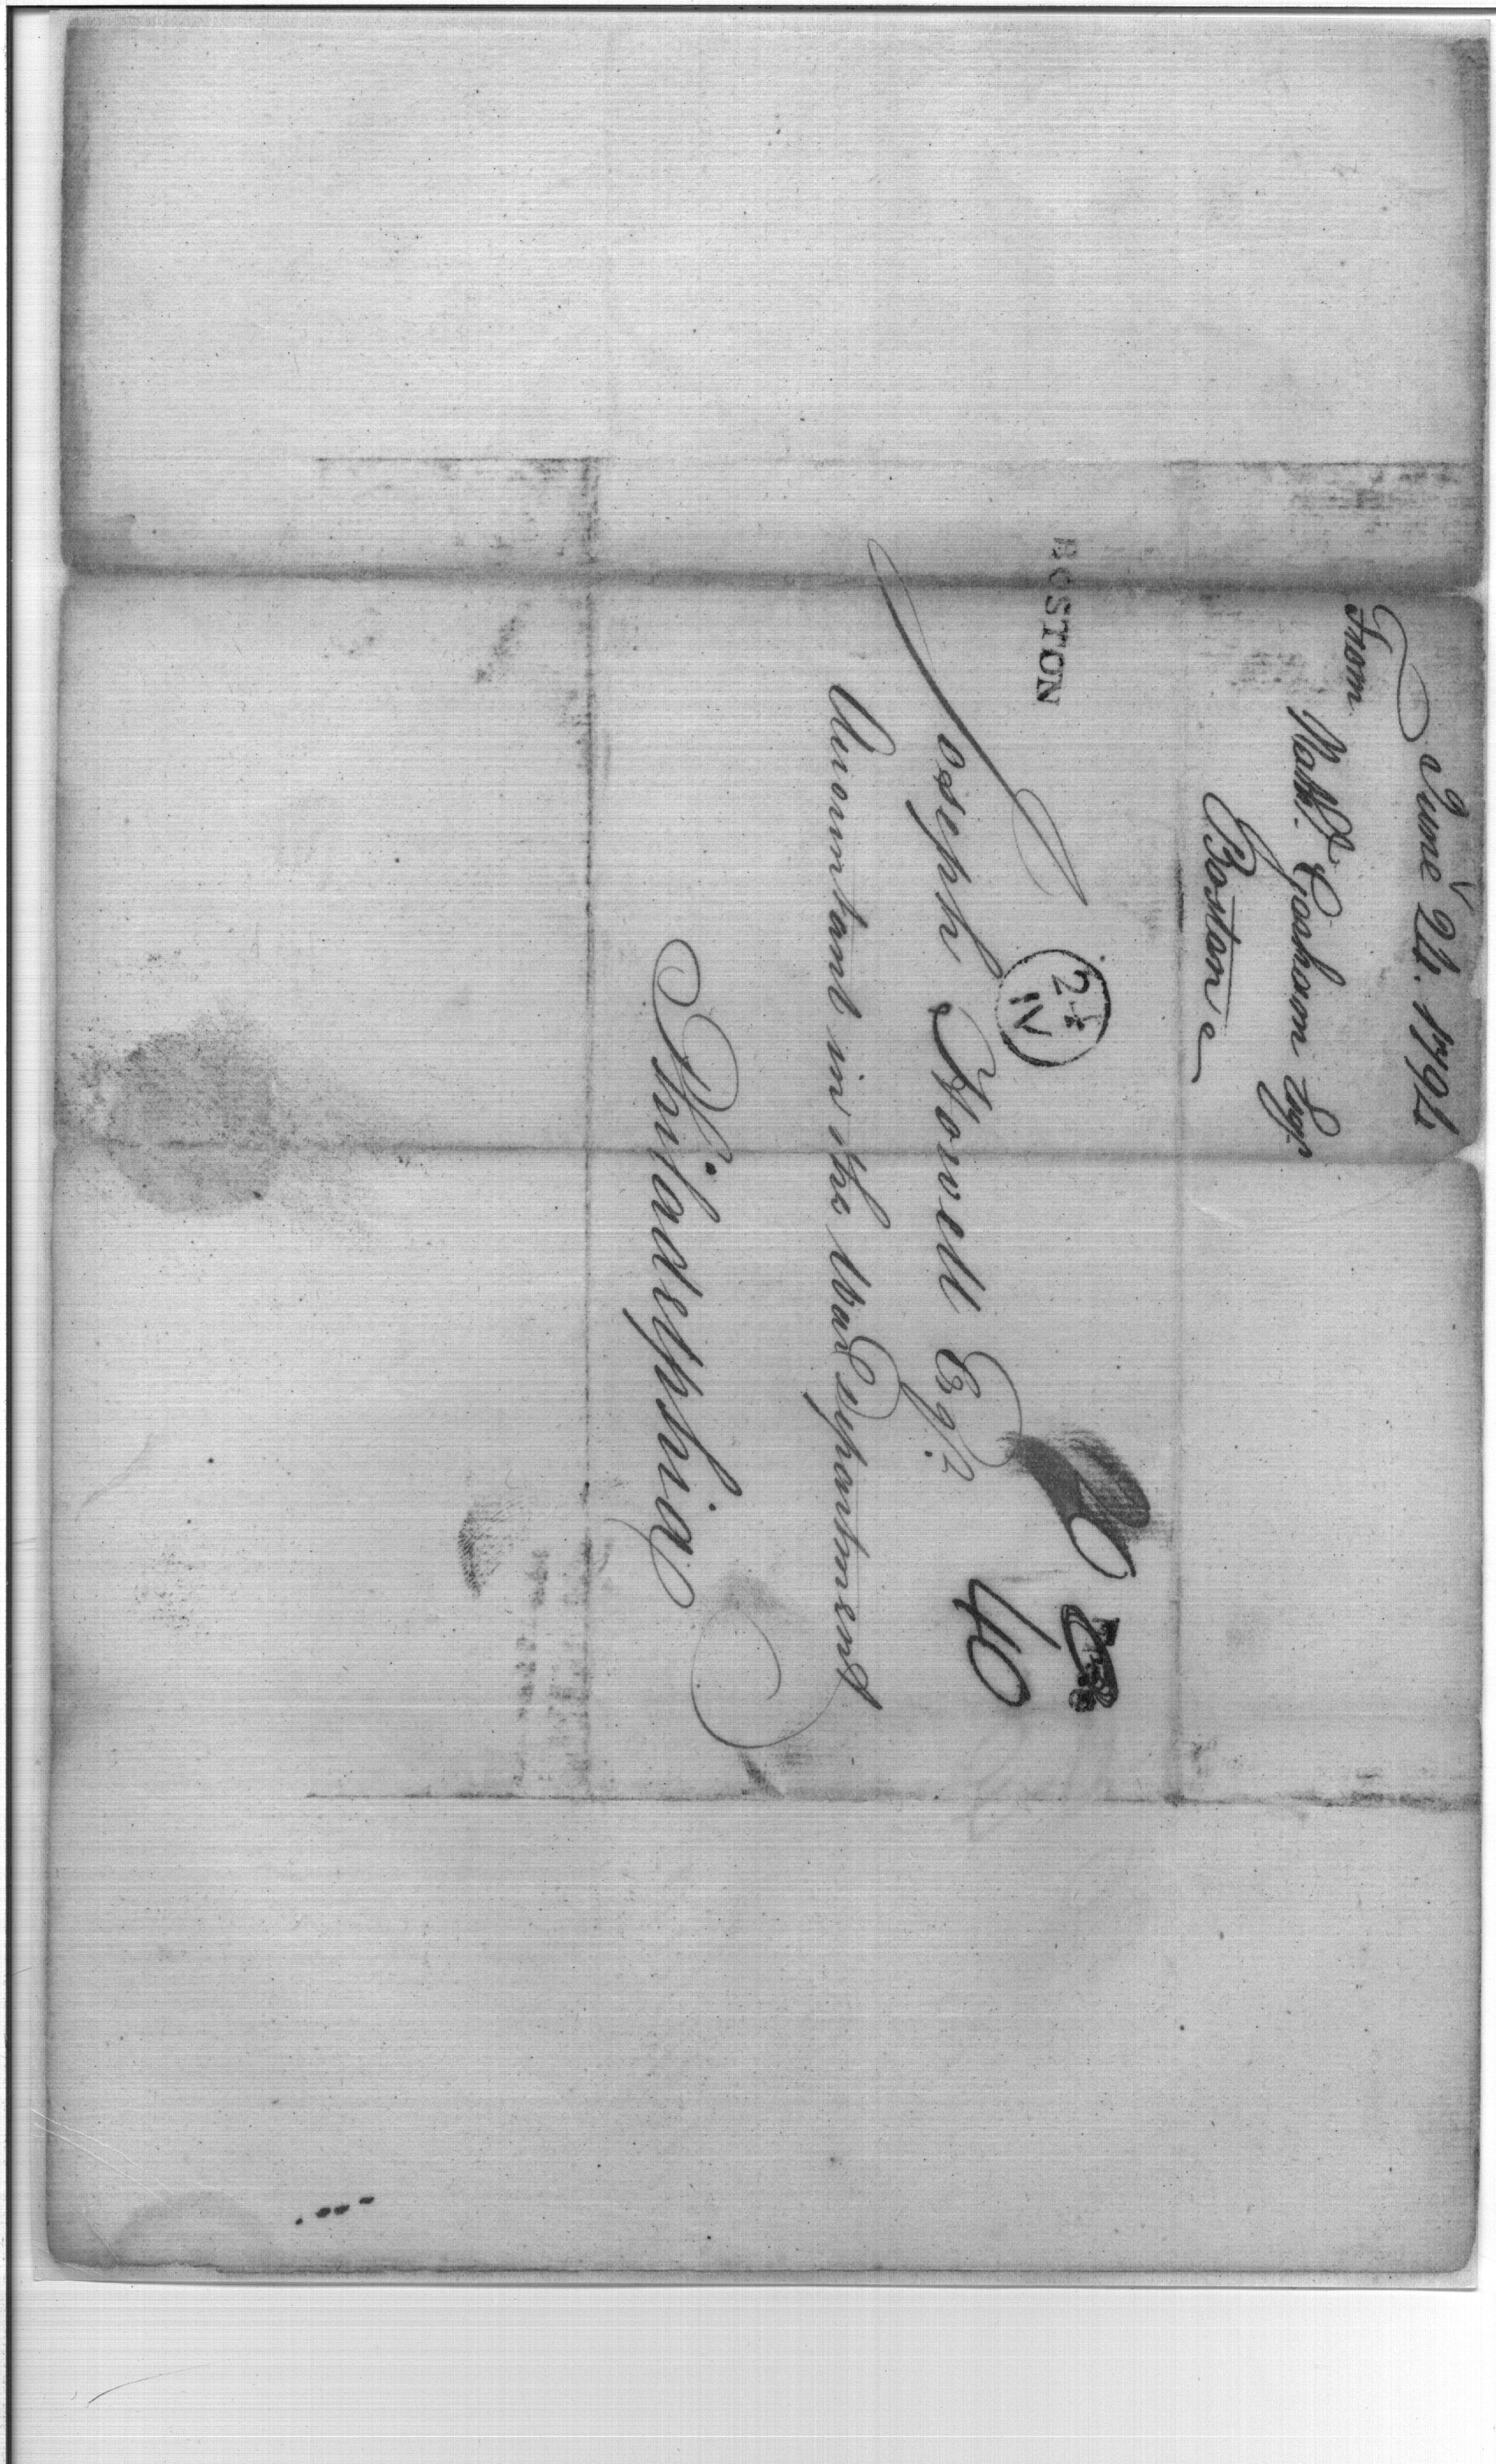 June 24. 1794
From
Nath.l Gorham Sup.
Boston
BOSTON
24 IV
40
Joseph Howell Esq.r
Accountant in the War Department
Philadelphia